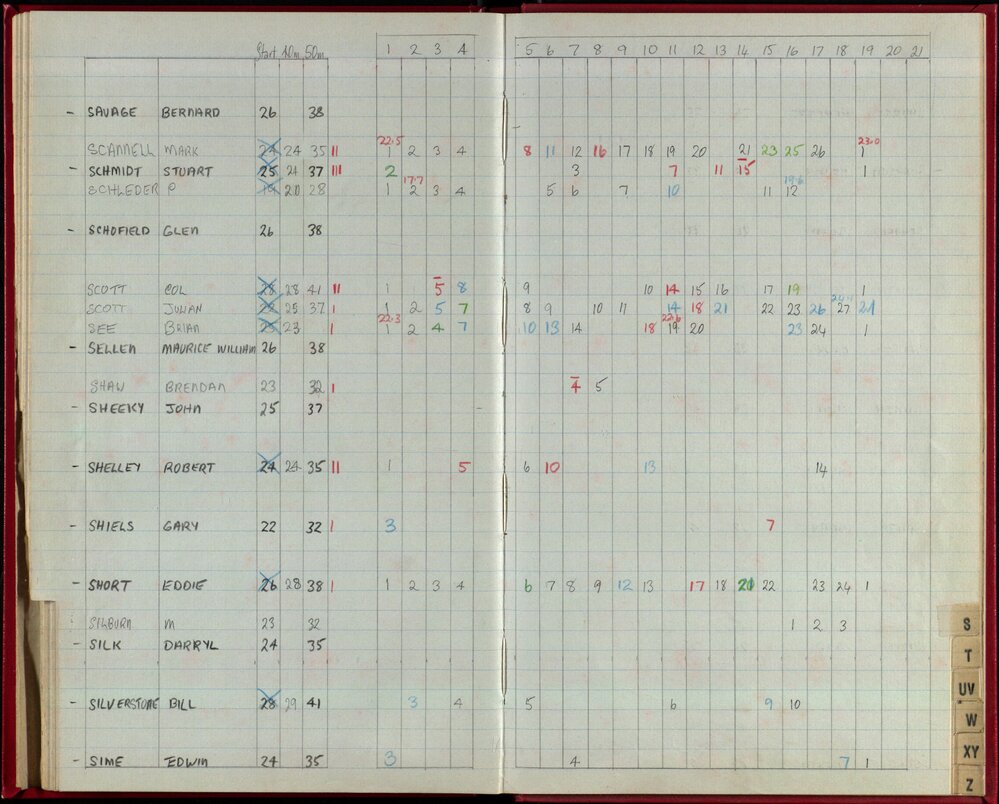 Start 40m 50m 1 2 3 4 5 6 7 8 9 10 11 12 13 14 15 16 17 18 19 20 21
- SAVAGE BERNARD 26 38
22.5 23.0
SCANNELL MARK 24 24 35 II 1 2 3 4 8 11 12 16 17 18 19 20 21 23 25 26 1
- SCHMIDT STUART 25 21 37 III 2 3 7 11 15 1
17.7 19.6
SCHLEDER P 19 20 28 1 2 3 4 5 6 7 10 11 12
- SCHOFIELD GLEN 26 38
SCOTT COL 28 41 II 1 5 8 9 10 14 15 16 17 19 1
SCOTT JULIAN 25 37 I 1 2 5 7 8 9 10 11 14 18 21 22 23 26 27
22.3 22.6
SEE BRIAN 23 I 1 2 4 7 10 13 14 18 19 20 23 24 1
- SELLEN MAURICE WILLIAM 26 38
SHAW BRENDAN 23 32 I 4 5
- SHEEKY JOHN 25 37
- SHELLEY ROBERT 24 24 35 II 1 5 6 10 13 14
- SHIELS GARY 22 32 I 3 7
- SHORT EDDIE 26 28 38 I 1 2 3 4 6 7 8 9 12 13 17 18 22 23 24 1
SILBURN M 23 32 1 2 3
- SILK DARRYL 24 35
- SILVERSTONE BILL 28 29 41 3 4 5 6 9 10
- SIME EDWIN 24 35 3 4 7 1
S
T
UV
W
XY
Z